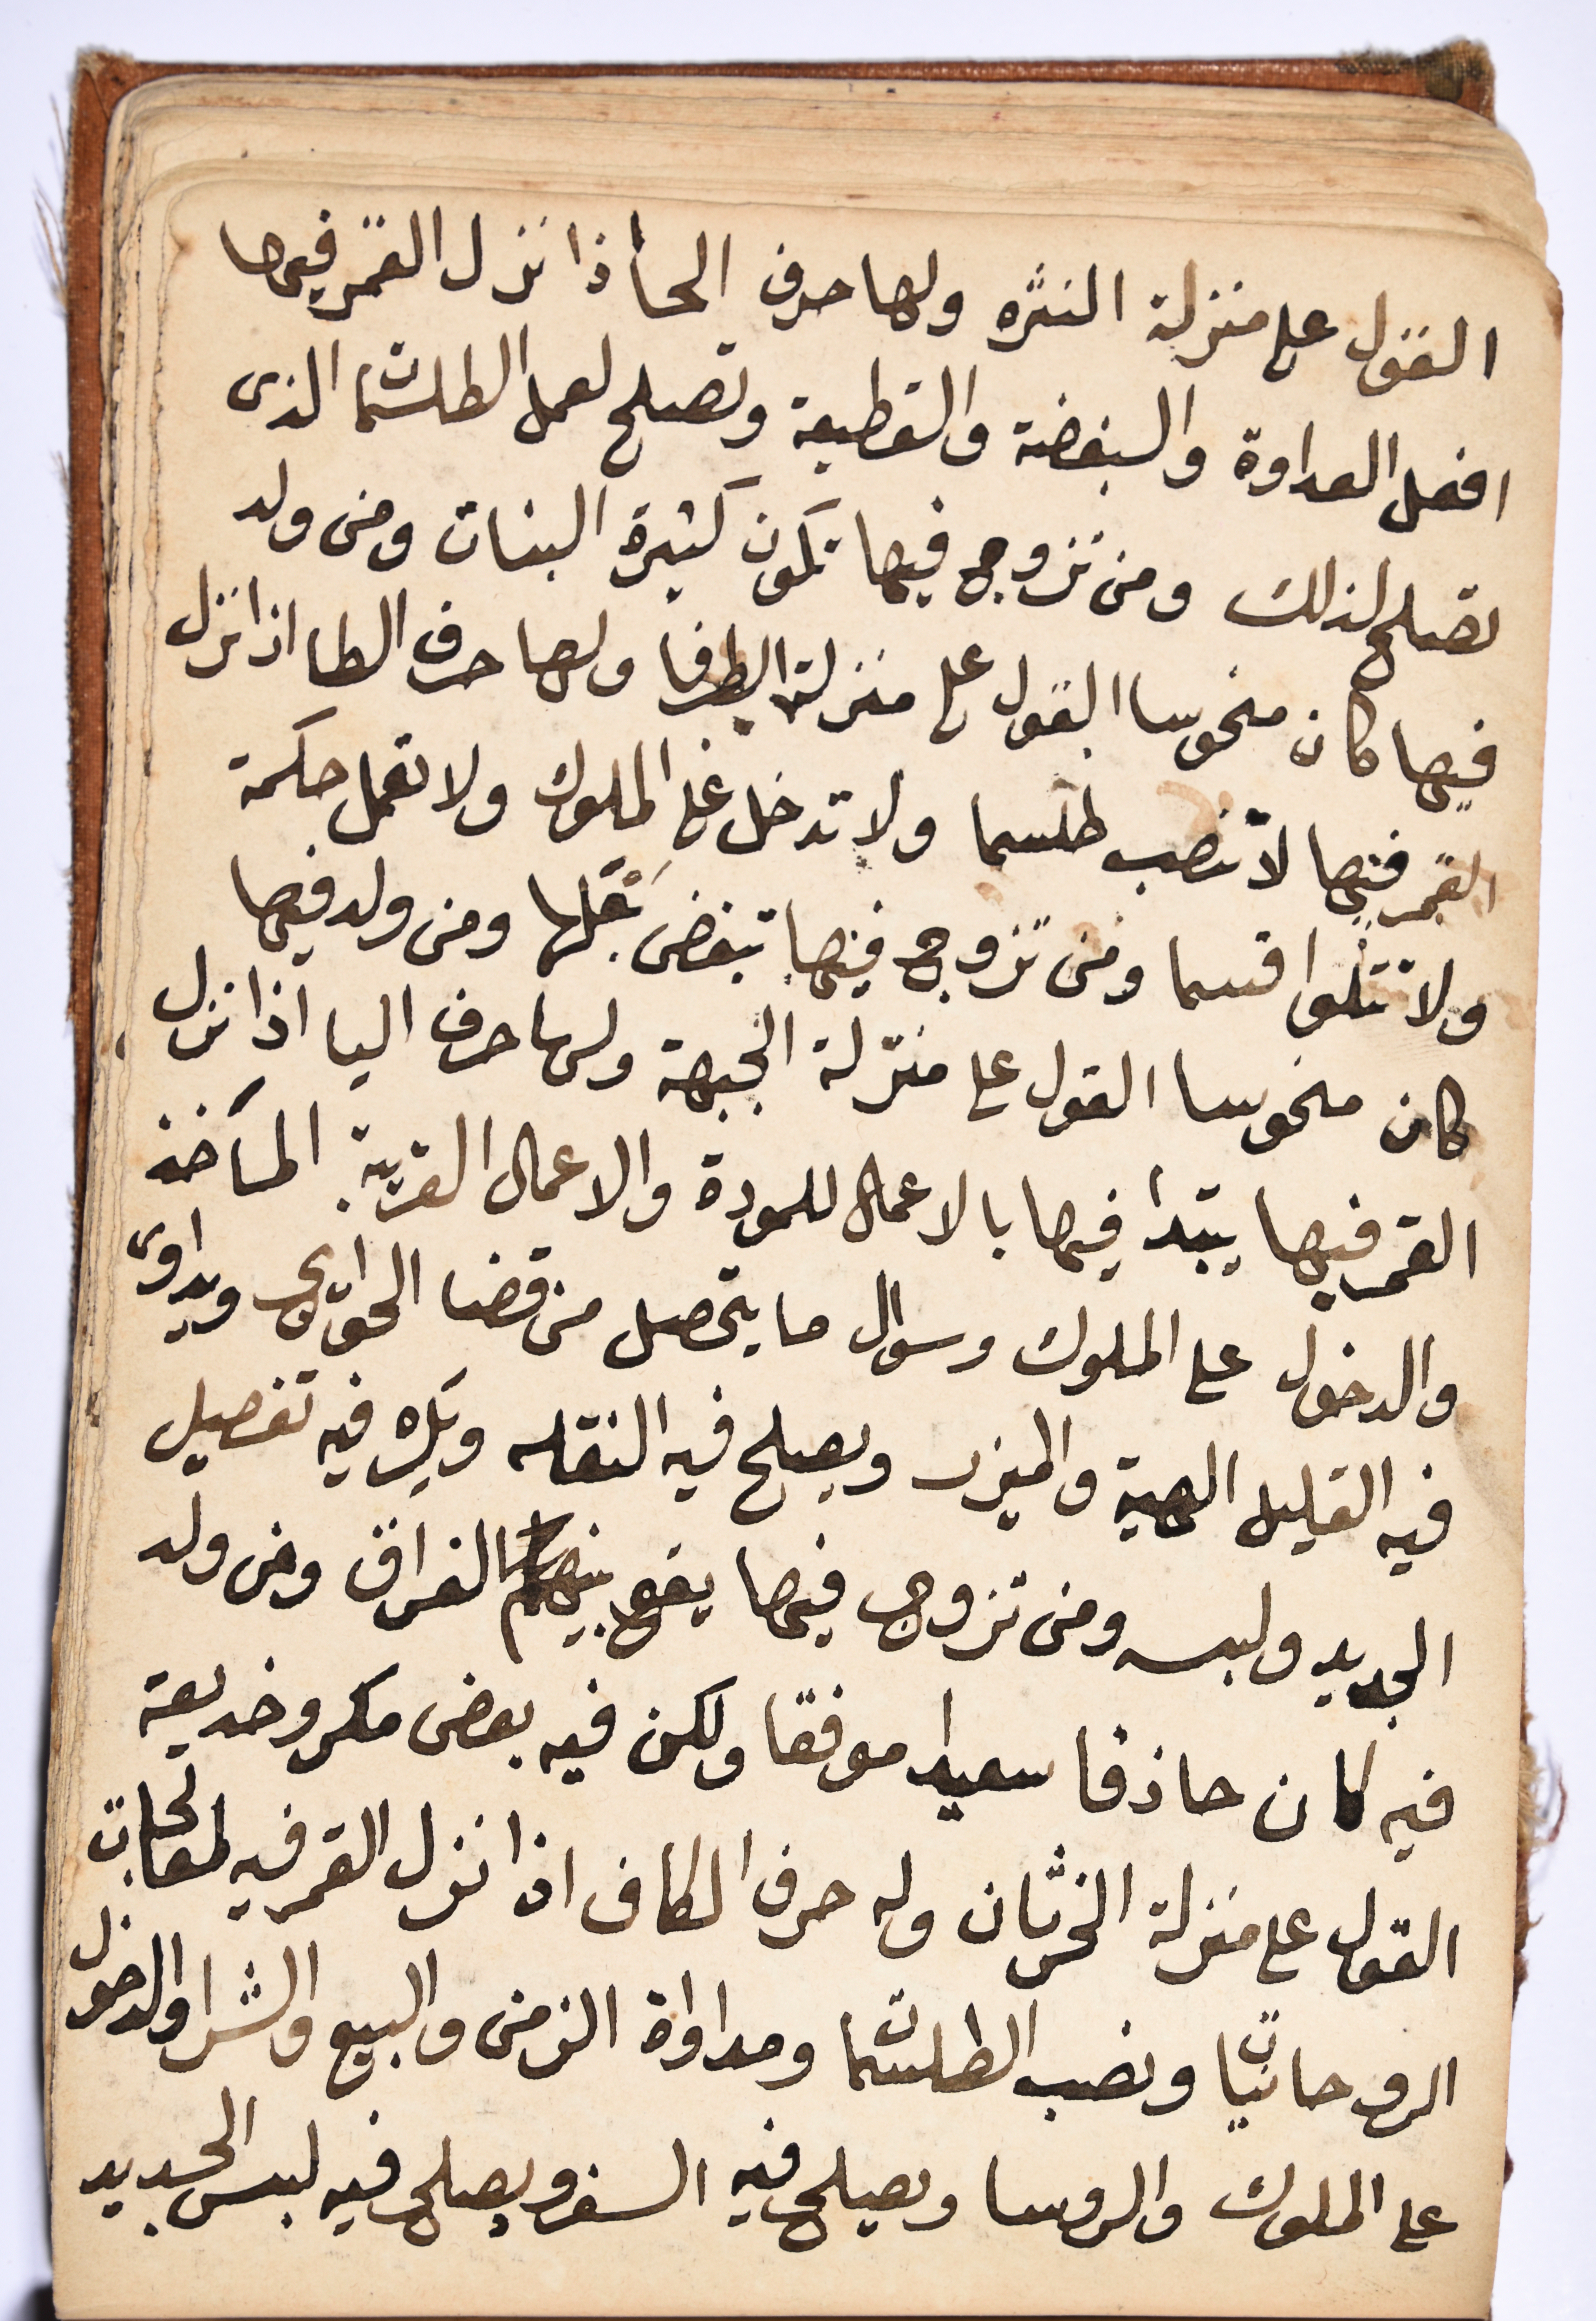 القول على منزلة النثره ولها حرف الحا أذا نزل القمر فيها
افعل العداوة والبغضة والقطيعة وتصلح لعمل الطلسمات الذى
تصلح لذلك ومن تزوج فيها تكون كثيرة البنات ومن ولد
فيها كان منحوسا القول على منزلة الطرفا ولها حرف الطا اذا نزل
القمر فيها لا تنصب طلسما ولا تدخل على الملوك ولا تعمل حكمة
ولا تتلوا قسما ومن تزوج فيها تبغض بعلها ومن ولد فيها
كان منحوسا القول على منزلة الجبهة ولها حرف اليا اذا نزل
القمر فيها يبتدأ فيها بالاعمال للمودة والاعمال القريبة المأخذ
والدخول على الملوك وسوال ما يتحصل من قضا الحوايج ويداوى
فيه القليل الهية والميزر ويصلح فيه النقله ويكره فيه تفصيل
الجديد ولبسه ومن تزوج فيها يقع بينهما الفراق ومن ولد
فيه كان حاذقا سعيدا موفقا ولكن فيه بعض مكر وخديعة
القول على منزلة الخرثان وله حرف الكاف اذا نزل القمر فيه لمعالجات
الروحانيات ونصب الطلسمات ومداواة الزمنى والبيع والشرا والدخول
على الملوك والروسا ويصلح فيه السفر ويصلح فيه لبس الجديد